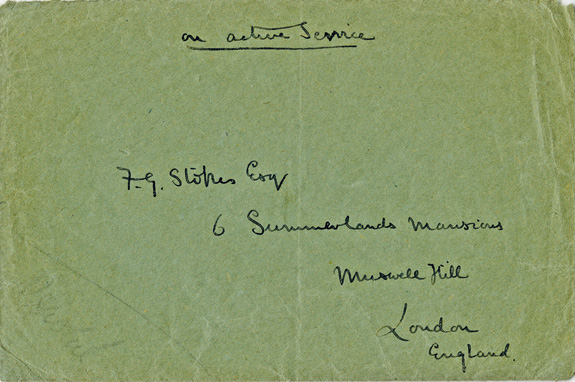 on active Service
F.G. Stokes Esq
6 Summerlands Mansions
Muswell Hill
London
England.